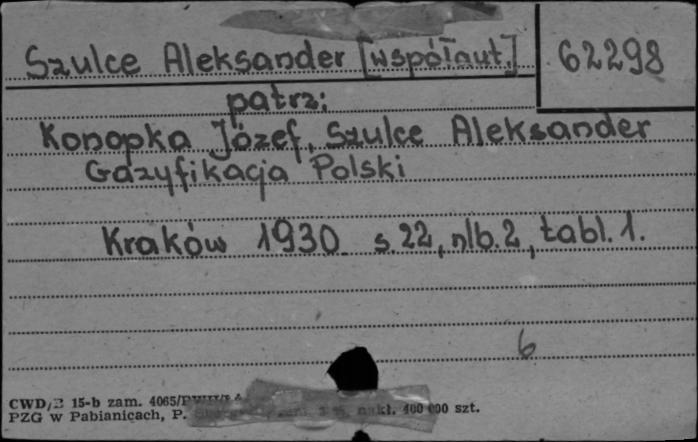 Szulce Aleksander [współaut.]
62298
patrz:
Konopka Józef, Szulce Aleksander
Gazyfikacja Polski
Kraków 1930 s.22, nlb.2, tabl.1.
6
CWD/E 15-b zam. 4065/PWH/
PZG w Pabianicach, P. nakł. 400 000 szt.